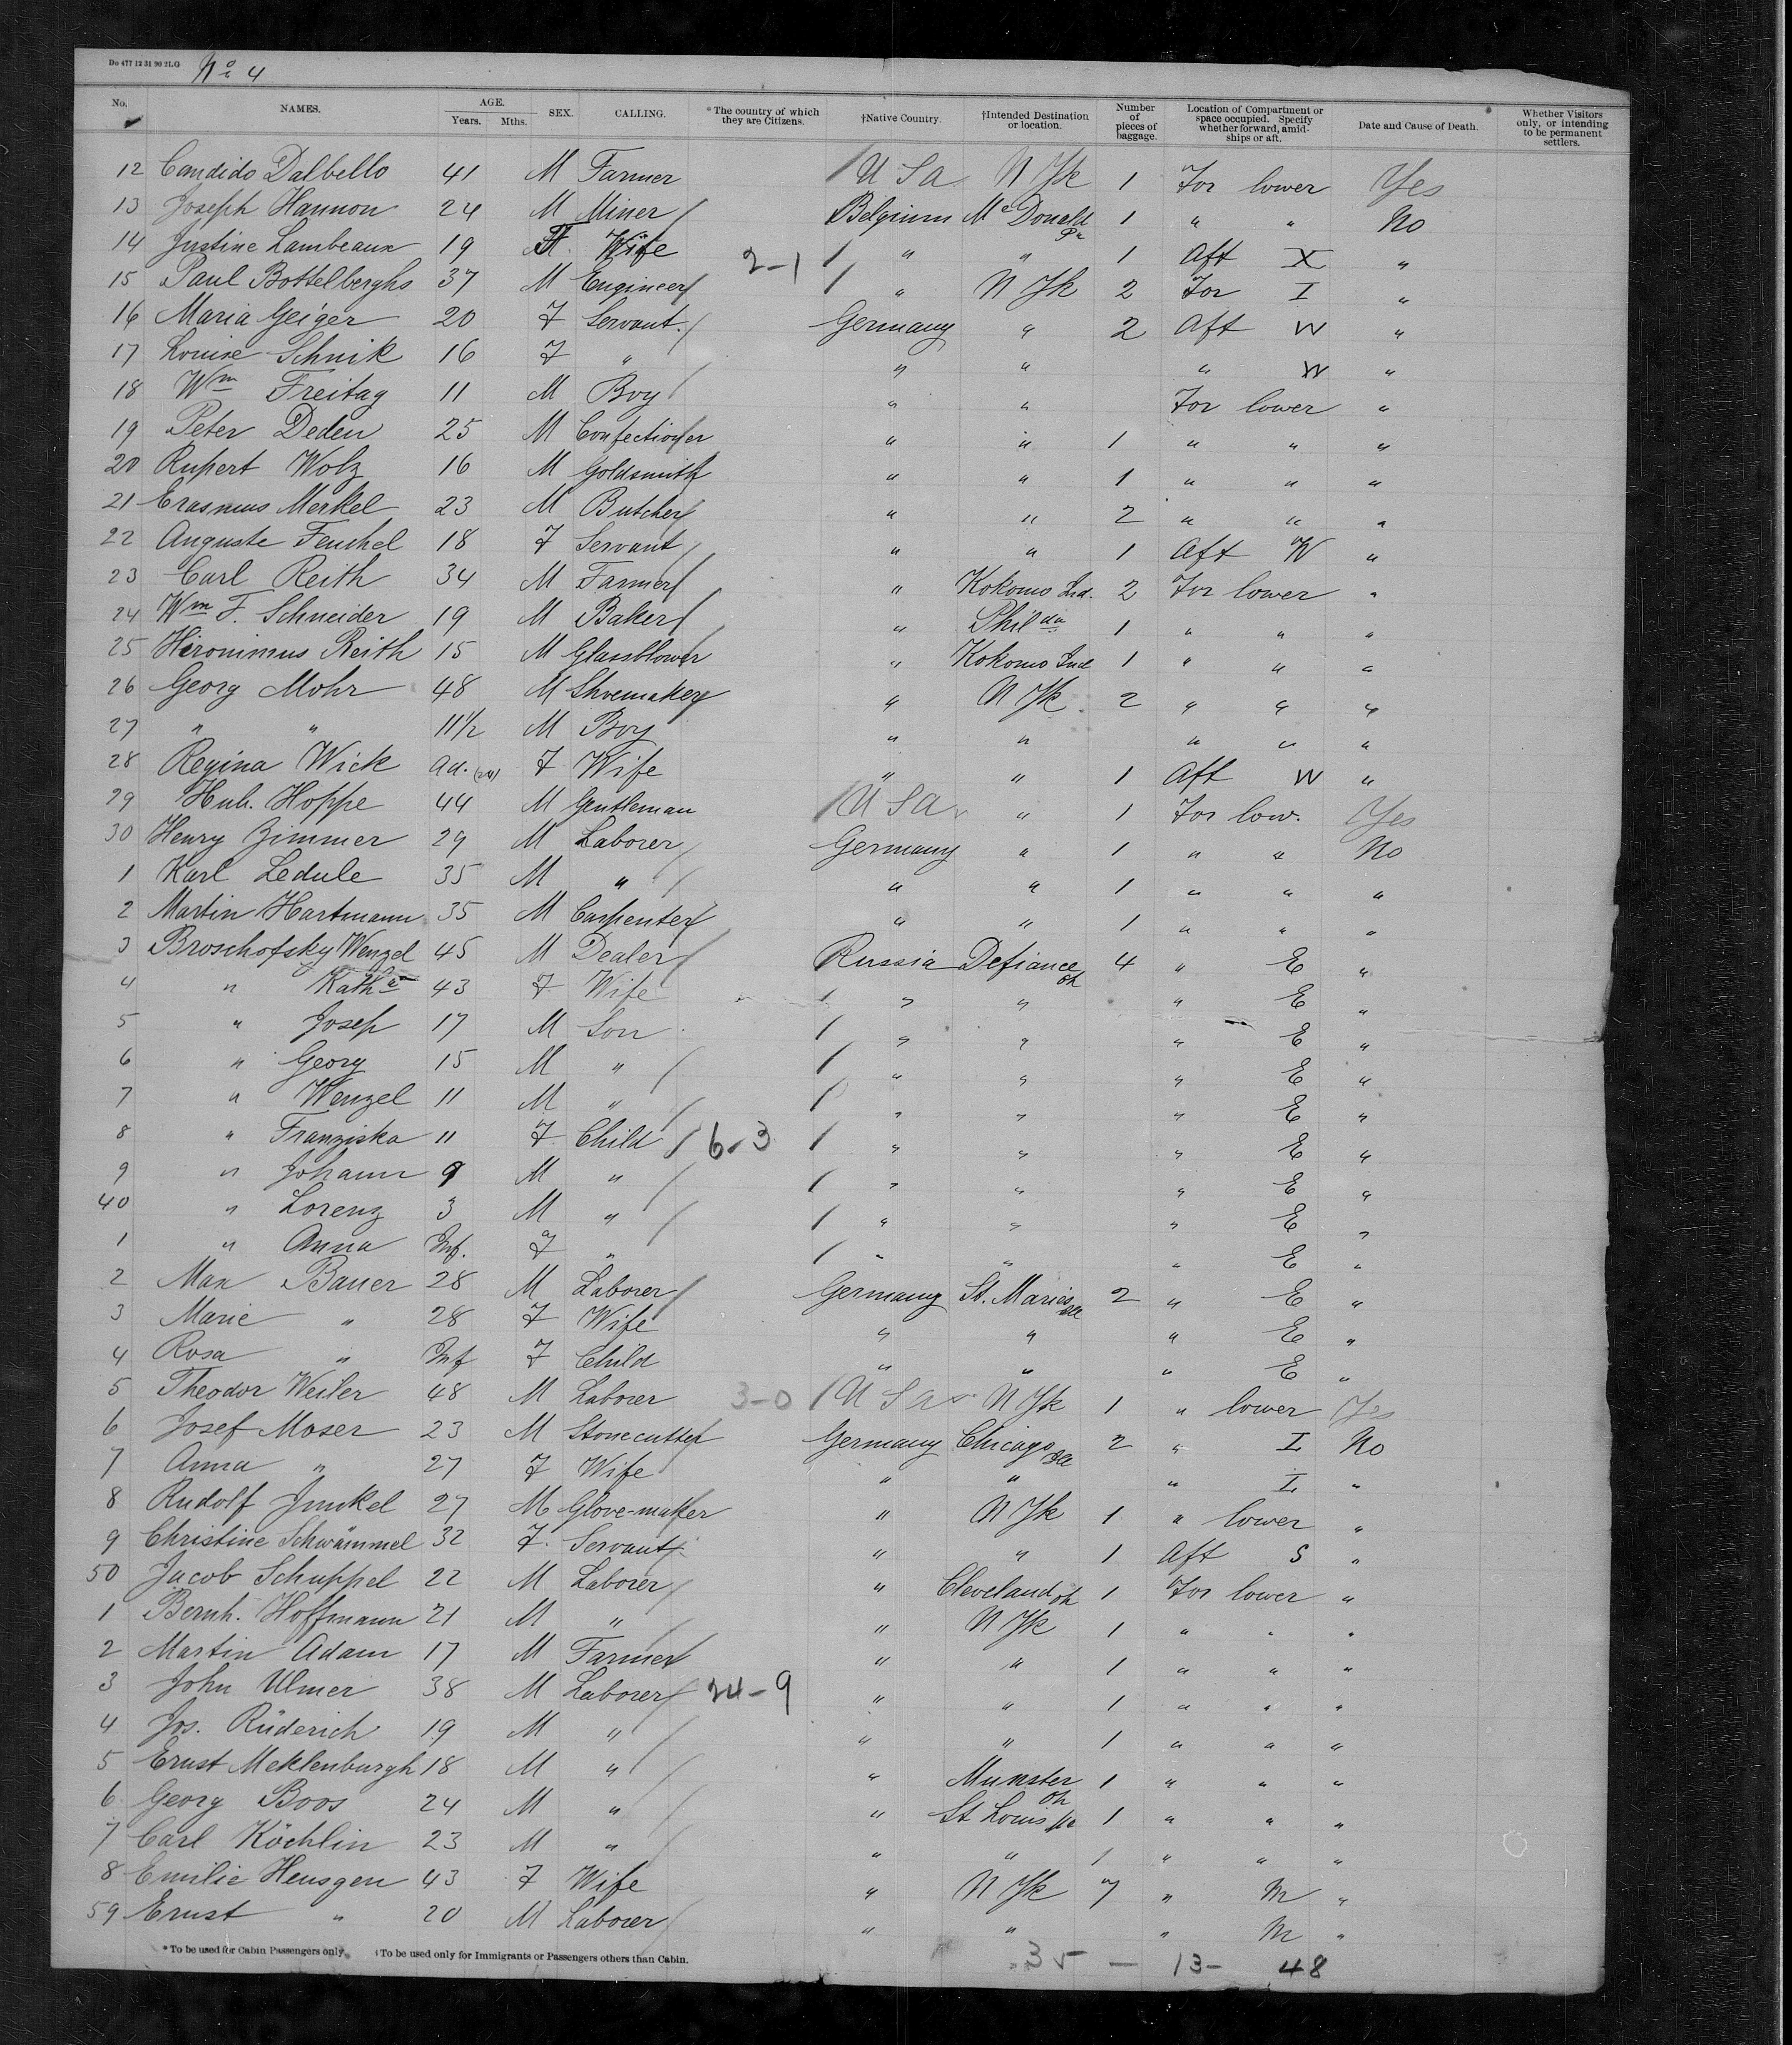 Do 477 12 31 90 2LG Nº 4
No. NAMES. AGE. Years. Mths. SEX. CALLING. *The country of which they are Citizens. †Native Country. †Intended Destination or location. Number of pieces of baggage. Location of Compartment or space occupied. Specify whether forward, amidships or aft. Date and Cause of Death. Whether Visitors only, or intending to be permanent settlers.
12 Candido Dalbello 41 M Farmer U S a N Yk 1 For lower Yes
13 Joseph Hannon 24 M Miner Belgium McDonald Pa 1 " " No
14 Justine Lambeaux 19 F Wife 2-1 " " 1 Aft X "
15 Paul Bottelberghs 37 M Engineer " N Yk 2 For I "
16 Maria Geiger 20 F Servant. Germany " 2 Aft W "
17 Louise Schnik 16 F " " " " W "
18 Wm Freitag 11 M Boy " " For lower "
19 Peter Deden 25 M Confectioner " " 1 " " "
20 Rupert Wolz 16 M Goldsmith " " 1 " " "
21 Erasmus Merkel 23 M Butcher " " 2 " " "
22 Auguste Feuchel 18 F Servant " " 1 Aft W "
23 Carl Reith 34 M Farmer " Kokomo Ind. 2 For lower "
24 Wm F. Schneider 19 M Baker " Philda 1 " " "
25 Hironimus Reith 15 M Glassblower " Kokomo Ind 1 " " "
26 Georg Mohr 48 M Shoemaker " N Yk. 2 " " "
27 " " 11 1/2 M Boy " " " " "
28 Regina Wick ad. F Wife " " 1 Aft W "
29 Hub. Hoppe 44 M Gentleman U S a " 1 For low. Yes
30 Henry Zimmer 29 M Laborer Germany " 1 " " No
1 Karl Ledule 35 M " " " 1 " " "
2 Martin Hartmann 35 M Carpenter " " 1 " " "
3 Broschofsky Wenzel 45 M Dealer Russia Defiance Oh 4 " E "
4 " Katha 43 F Wife " " " E "
5 " Josep 17 M Son " " " E "
6 " Georg 15 M " " " " E "
7 " Wenzel 11 M " " " " E "
8 " Franziska 11 F Child 6-3 " " " E "
9 " Johann 9 M " " " " E "
40 " Lorenz 3 M " " " " E "
1 " Anna Inf. F " " " " E "
2 Max Bauer 28 M Laborer Germany St. Maries 2 " E "
3 Marie " 28 F Wife " " " E "
4 Rosa " Inf F Child " " " E "
5 Theodor Weiler 48 M Laborer 3-0 U S a N Yk 1 " lower Yes
6 Josef Moser 23 M Stonecutter Germany Chicago Ill 2 " I No
7 Anna " 27 F Wife " " " I "
8 Rudolf Junkel 27 M Glove-maker " N Yk 1 " lower "
9 Christine Schwämmel 32 F. Servant " " 1 Aft S "
50 Jacob Schuppel 22 M Laborer " Cleveland Oh 1 For lower "
1 Bernh. Hoffmann 21 M " " N Yk 1 " " "
2 Martin Adam 17 M Farmer " " 1 " " "
3 John Ulmer 38 M Laborer 24-9 " " 1 " " "
4 Jos. Rüderich 19 M " " " 1 " " "
5 Ernst Meklenburgh 18 M " " Munster Oh 1 " " "
6 Georg Boos 24 M " " St Louis Mo 1 " " "
7 Carl Köchlin 23 M " " " 1 " " "
8 Emilie Heusgen 43 F Wife " N Yk 7 " M "
59 Ernst " 20 M Laborer " " " M "
*To be used for Cabin Passengers only. †To be used only for Immigrants or Passengers others than Cabin.
35 — 13 - 48